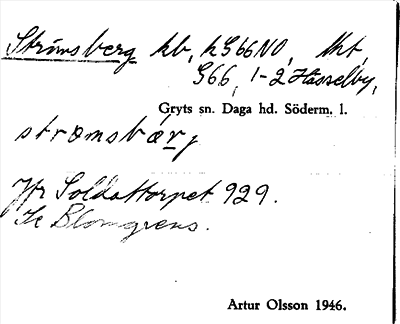 Strömsberg kb, hG66NO, tht,
G66, 1-2 Hässelby,
Gryts sn. Daga hd. Söderm. l.
strömsbærj
Jfr Soldattorpet 929.
Se Blomgrens.
Artur Olsson 1946.